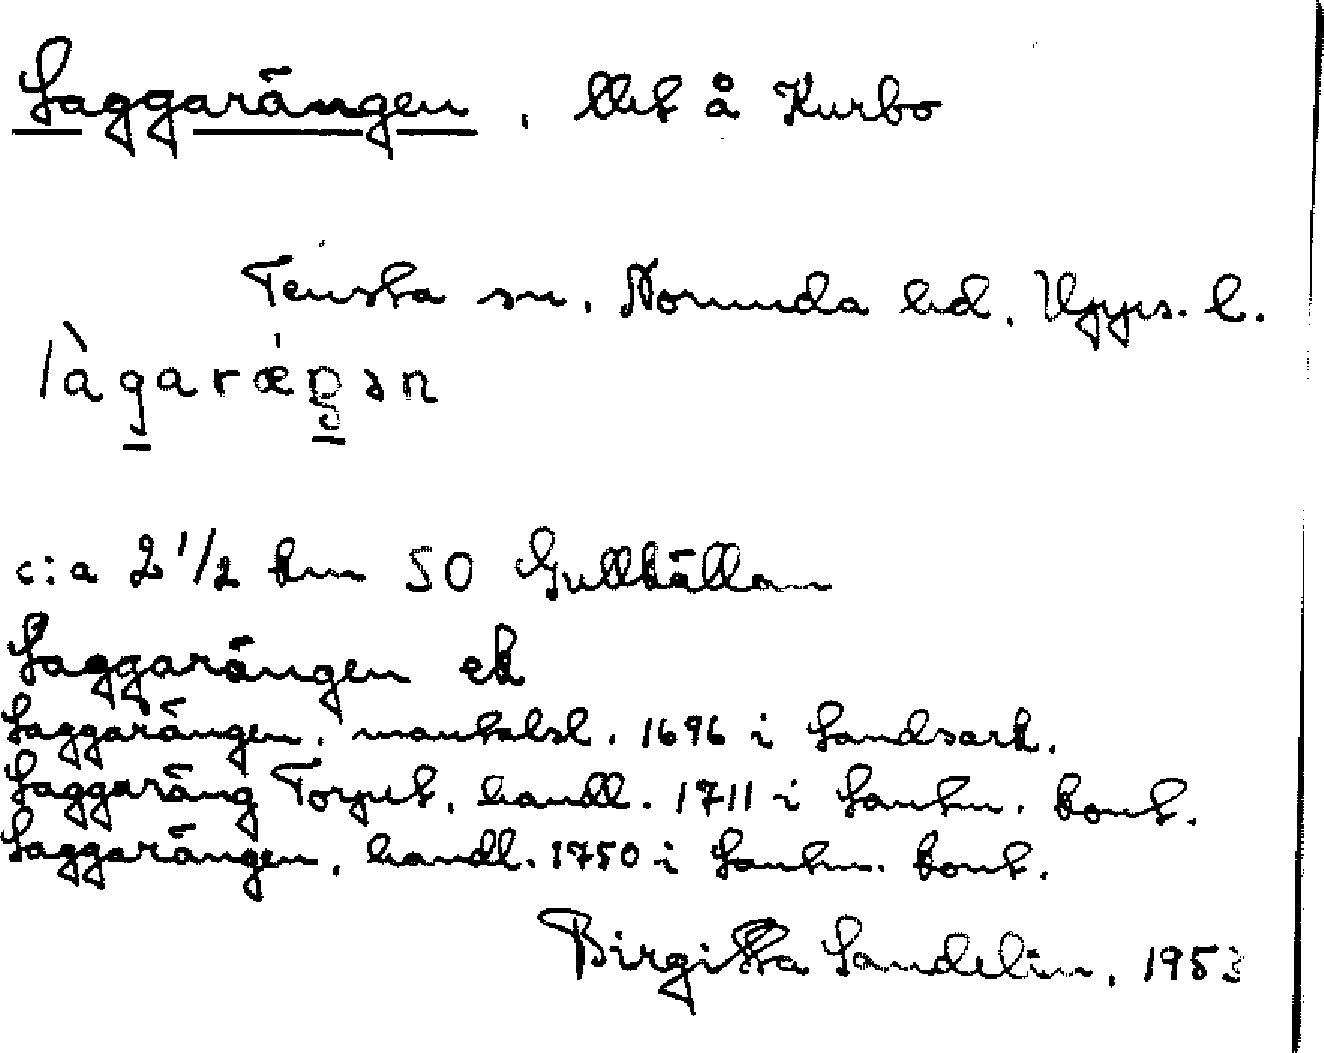 Laggarängen, lht å Kurbo
Tensta sn. Norunda hd. Upps. l.
làgarǽŋən
c:a 2 1/2 km SO Gullkällan
Laggarängen ek
Laggarängen, mantalsl. 1696 i Landsark.
Laggaräng Torpet, handl. 1711 i Lantm. kont.
Laggarängen, handl. 1750 i Lantm. kont.
Birgitta Sandelin, 1953